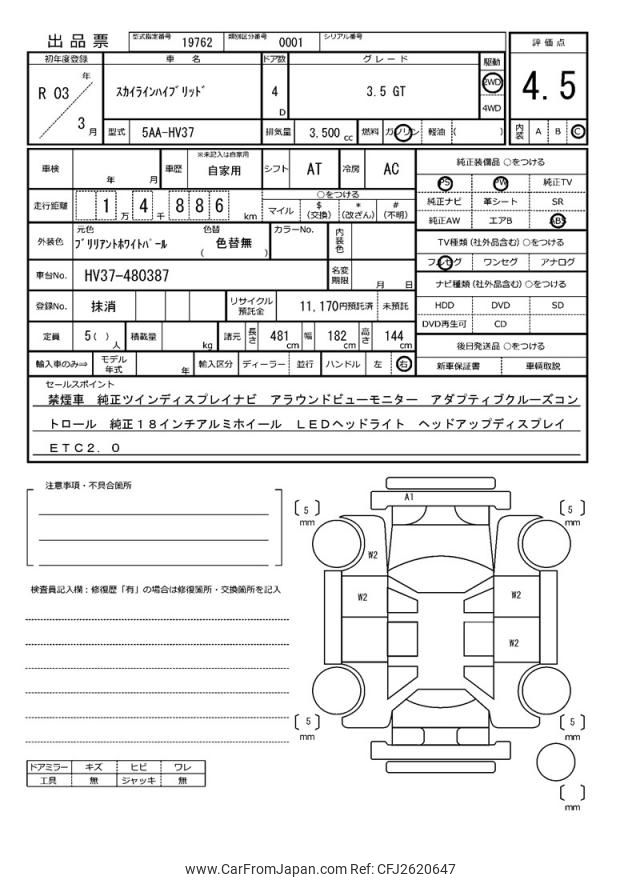 出品票
型式指定番号 19762 類別区分番号 0001 シリアル番号
初年度登録 車名 ドア数 グレード 駆動 評価点
R 03 年 3 月
スカイラインハイブリッド 4 D 3.5 GT 2WD 4WD
4.5
型式 5AA-HV37 排気量 3.500 cc 燃料 ガソリン 軽油 ( )
内装 A B C
車検 年 月 車歴 ※未記入は自家用 自家用 シフト AT 冷房 AC
純正装備品 ○をつける
PS PW 純正TV
純正ナビ 革シート SR
純正AW エアB ABS
走行距離 1 万 4 千 8 8 6 km
○をつける
マイル $ (交換) * (改ざん) # (不明)
外装色 元色 ブリリアントホワイトパール 色替 ( 色替無 ) カラーNo. 内装色
TV種類 (社外品含む) ○をつける
フルセグ ワンセグ アナログ
車台No. HV37-480387 名変期限 月 日
ナビ種類 (社外品含む) ○をつける
HDD DVD SD
DVD再生可 CD
登録No. 抹消 リサイクル預託金 11,170円預託済 未預託
定員 5( ) 人 積載量 kg 諸元 長さ 481 cm 幅 182 cm 高さ 144 cm
後日発送品 ○をつける
新車保証書 車輌取説
輸入車のみ⇒ モデル年式 年 輸入区分 ディーラー 並行 ハンドル 左 右
セールスポイント
禁煙車 純正ツインディスプレイナビ アラウンドビューモニター アダプティブクルーズコン
トロール 純正18インチアルミホイール LEDヘッドライト ヘッドアップディスプレイ
ETC2.0
注意事項・不具合箇所
検査員記入欄：修復歴「有」の場合は修復箇所・交換箇所を記入
ドアミラー キズ ヒビ ワレ
工具 無 ジャッキ 無
A1
5 mm
5 mm
W2
W2
W2
W2
5 mm
5 mm
mm
www.CarFromJapan.com Ref: CFJ2620647